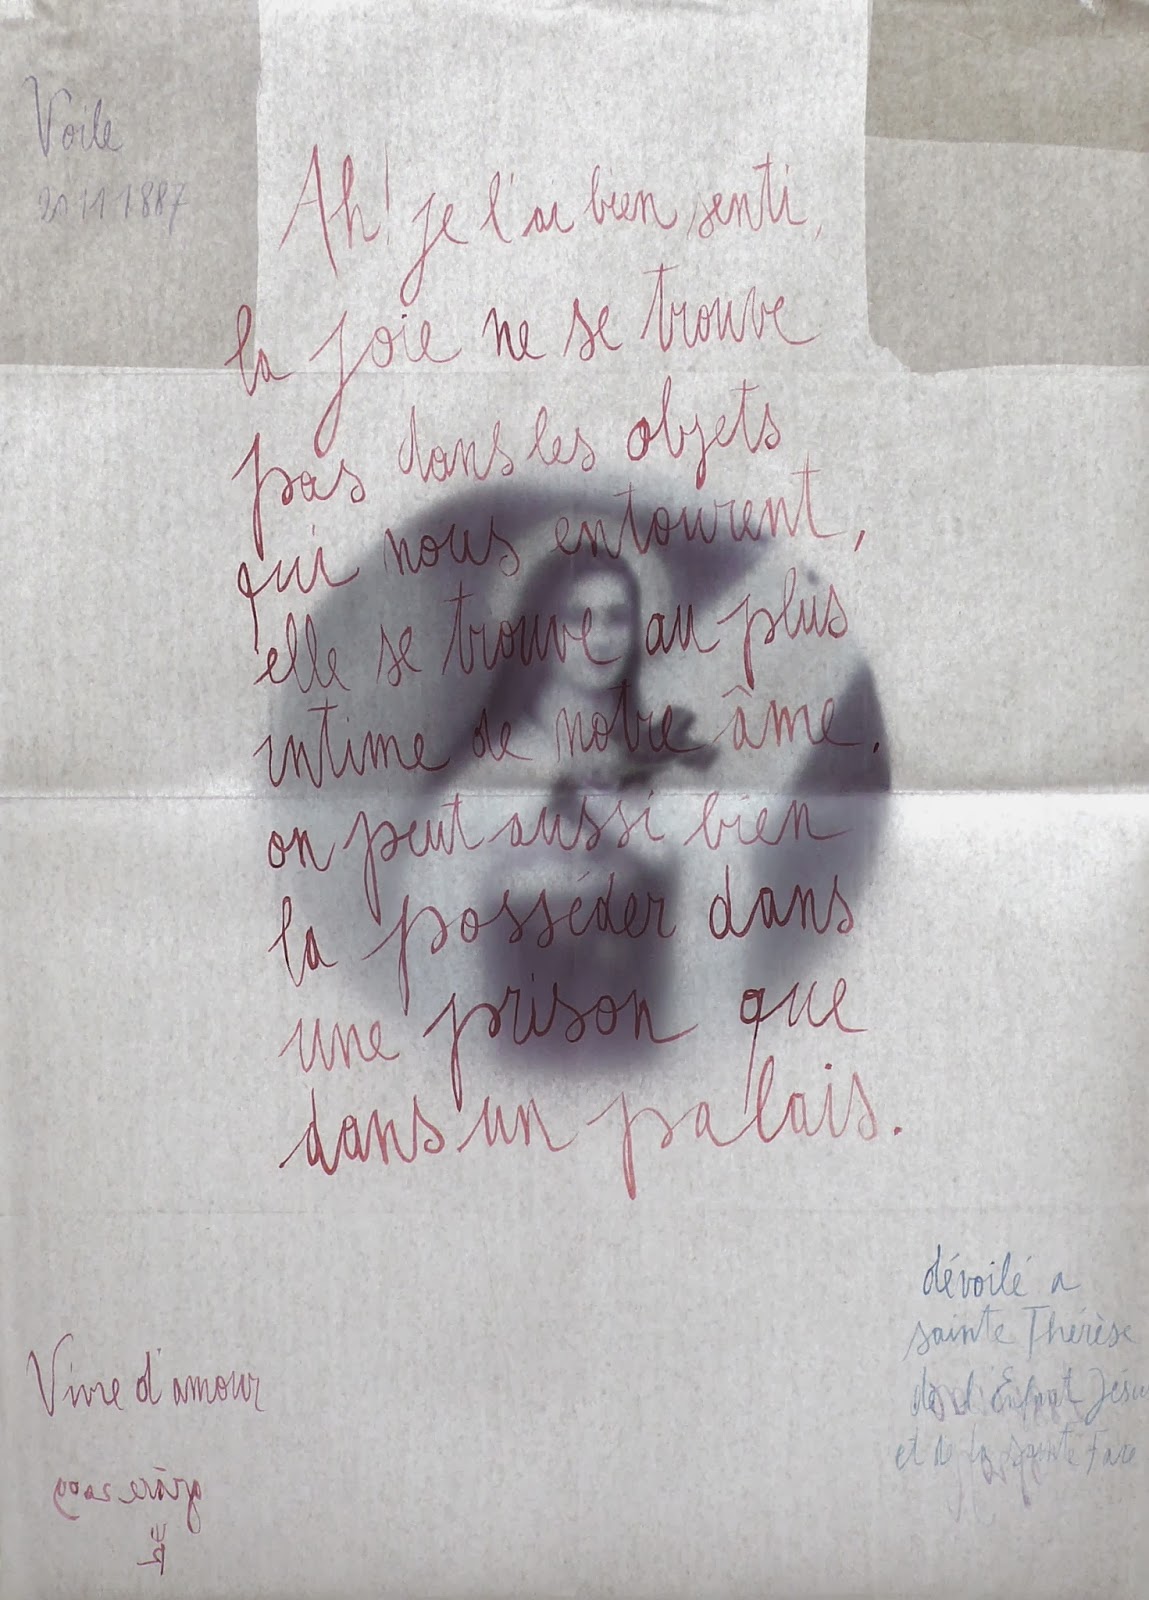 Voile
20 11 1887
Ah! je l'ai bien senti,
la joie ne se trouve
pas dans les objets
qui nous entourent,
elle se trouve au plus
intime de notre âme,
on peut aussi bien
la posséder dans
une prison que
dans un palais.
dévoilé a
sainte Thérèse
de l'Enfant Jésu
et de la sainte Face
Vivre d'amour
grâce 2009